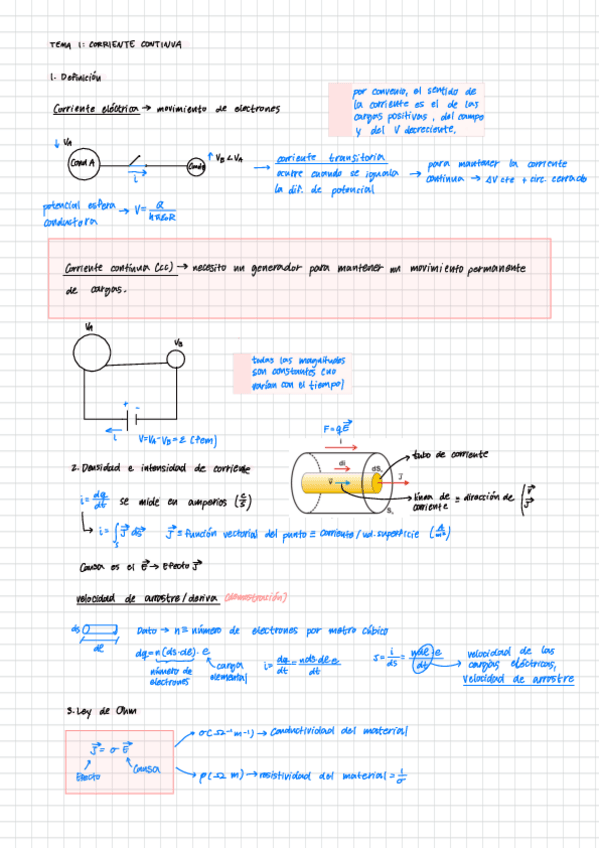 TEMA 1: CORRIENTE CONTINUA
1. Definición
Corriente eléctrica → movimiento de electrones
por convenio, el sentido de
la corriente es el de las
cargas positivas, del campo
y del V decreciente.
↓ VA
Cond A
↑ VB < VA
i
→ corriente transitoria
ocurre cuando se iguala
la dif. de potencial
→ para mantener la corriente
continua → ΔV cte + circ. cerrado
potencial esfera
conductora → V = Q / 4πε₀R
Corriente continua (CC) → necesito un generador para mantener un movimiento permanente
de cargas.
VA
VB
+ -
i
V = VA - VB = ε (fem)
todas las magnitudes
son constantes (no
varían con el tiempo)
2. Densidad e intensidad de corriente
F = qE⃗
i
di
dS
v⃗
J
S
tubo de corriente
línea de ≡ dirección de { v⃗
corriente J⃗
i = dq/dt se mide en amperios (C/s)
i = ∫S J⃗ dS⃗ J⃗ ≡ función vectorial del punto ≡ corriente/ud. superficie (A/m²)
Causa es el E⃗ → Efecto J⃗
velocidad de arrastre/deriva (demostración)
ds
dl
Dato → n ≡ número de electrones por metro cúbico
dq = n (ds · dl) · e
número de
electrones
carga
elemental
i = dq/dt = n ds · dl · e / dt
J = i/ds = n dl · e / dt
velocidad de las
cargas eléctricas,
velocidad de arrastre
3. Ley de Ohm
J⃗ = σ E⃗
Efecto
Causa
σ (Ω⁻¹ m⁻¹) → Conductividad del material
ρ (Ω m) → resistividad del material = 1/σ